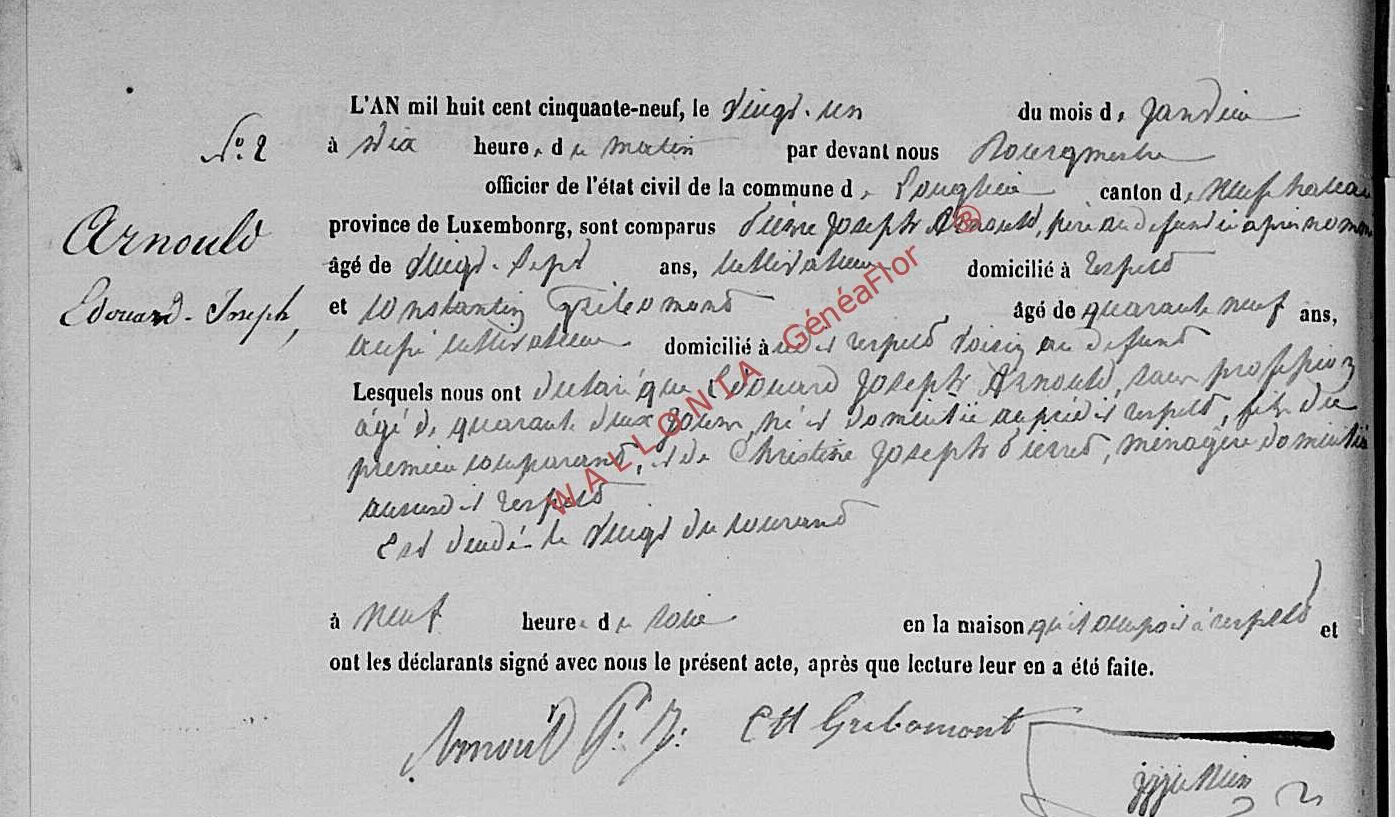 L'AN mil huit cent cinquante-neuf, le vingt-un du mois de Janvier
No. 2 à dix heures du matin par devant nous Bourgmestre
officier de l'état civil de la commune de Longlier canton de Neufchateau
Arnould province de Luxembourg, sont comparus Pierre Joseph Arnould, père au défunt ci après nommé
âgé de vingt-sept ans, cultivateur domicilié à respelt
Edouard-Joseph, et Constantin Gribomont, âgé de quarante neuf ans,
aussi cultivateur domicilié à respelt voisin au défunt
Lesquels nous ont déclaré que Edouard Joseph Arnould, sans profession
âgé de quarante deux jours, né et domicilié au prédit respelt, fils du
premier comparant, et de Christine Joseph Pierret, ménagère domiciliée
respelt
Est décédé le vingt du courant
à neuf heures du soir en la maison qu'il occupoit à respelt et
ont les déclarants signé avec nous le présent acte, après que lecture leur en a été faite.
Arnould P. J. Ctt Gribomont
WALLONIA GénéaFlor ®